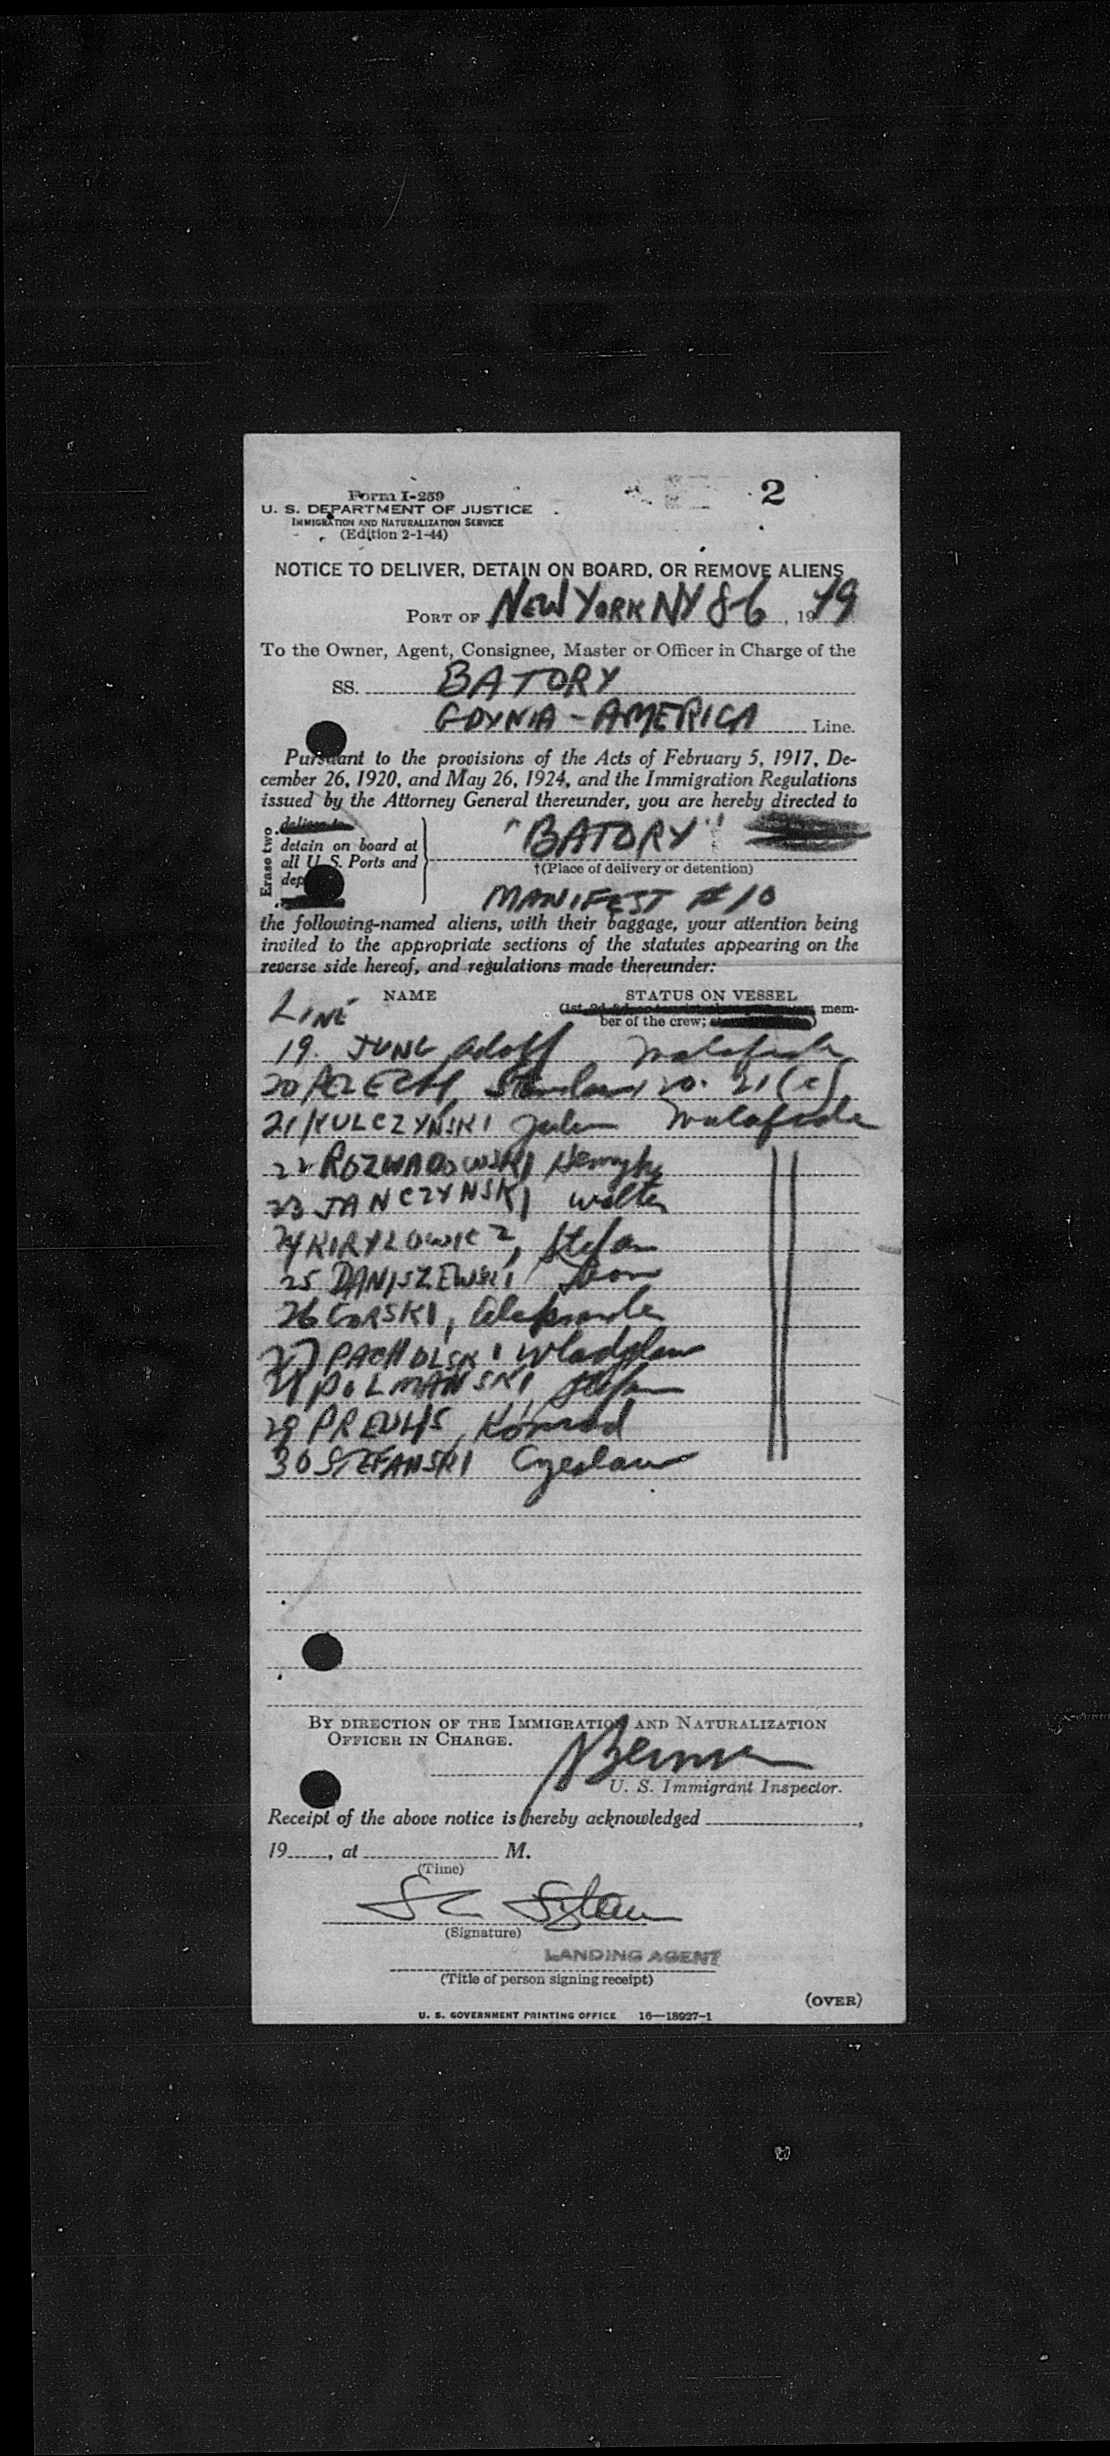 2
Form I-259
U. S. DEPARTMENT OF JUSTICE
IMMIGRATION AND NATURALIZATION SERVICE
(Edition 2-1-44)
NOTICE TO DELIVER, DETAIN ON BOARD, OR REMOVE ALIENS
PORT OF NEW YORK NY 8-6, 1949
To the Owner, Agent, Consignee, Master or Officer in Charge of the
SS. BATORY
GDYNIA - AMERICA Line.
Pursuant to the provisions of the Acts of February 5, 1917, De-
cember 26, 1920, and May 26, 1924, and the Immigration Regulations
issued by the Attorney General thereunder, you are hereby directed to
Erase two
deliver to
detain on board at
all U. S. Ports and
"BATORY"
†(Place of delivery or detention)
MANIFEST # 10
the following-named aliens, with their baggage, your attention being
invited to the appropriate sections of the statutes appearing on the
reverse side hereof, and regulations made thereunder:
LINE NAME STATUS ON VESSEL
mem-
ber of the crew;
19. JUNG, Adolf malafide
20 PELECH, 20. 21(c)
21 KULCZYNSKI Julian malafide
22 ROZWADOWSKI Henryk
23 JANCZYNSKI Walter
24 KIRYLOWICZ, Stefan
25 DANISZEWSKI Leon
26 GORSKI, Aleksander
27 PACHOLSKI Wladyslaw
28 POLMANSKI, Stefan
29 PREUHS, Konrad
30 STEFANSKI Czeslaw
BY DIRECTION OF THE IMMIGRATION AND NATURALIZATION
OFFICER IN CHARGE.
U. S. Immigrant Inspector.
Receipt of the above notice is hereby acknowledged
19, at M.
(Time)
(Signature)
LANDING AGENT
(Title of person signing receipt)
(OVER)
U. S. GOVERNMENT PRINTING OFFICE 16—18927-1